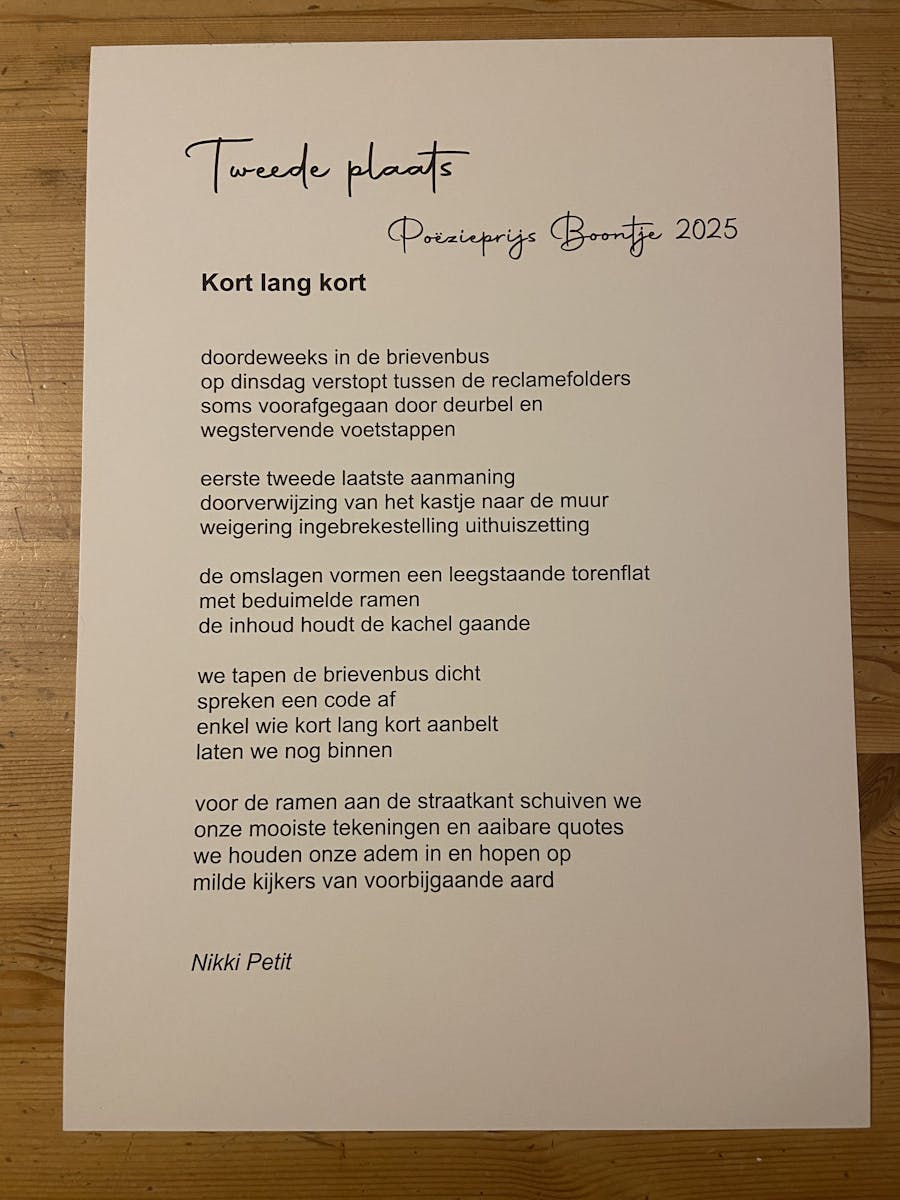 Tweede plaats
Poëzieprijs Boontje 2025
Kort lang kort
doordeweeks in de brievenbus
op dinsdag verstopt tussen de reclamefolders
soms voorafgegaan door deurbel en
wegstervende voetstappen
eerste tweede laatste aanmaning
doorverwijzing van het kastje naar de muur
weigering ingebrekestelling uithuiszetting
de omslagen vormen een leegstaande torenflat
met beduimelde ramen
de inhoud houdt de kachel gaande
we tapen de brievenbus dicht
spreken een code af
enkel wie kort lang kort aanbelt
laten we nog binnen
voor de ramen aan de straatkant schuiven we
onze mooiste tekeningen en aaibare quotes
we houden onze adem in en hopen op
milde kijkers van voorbijgaande aard
Nikki Petit